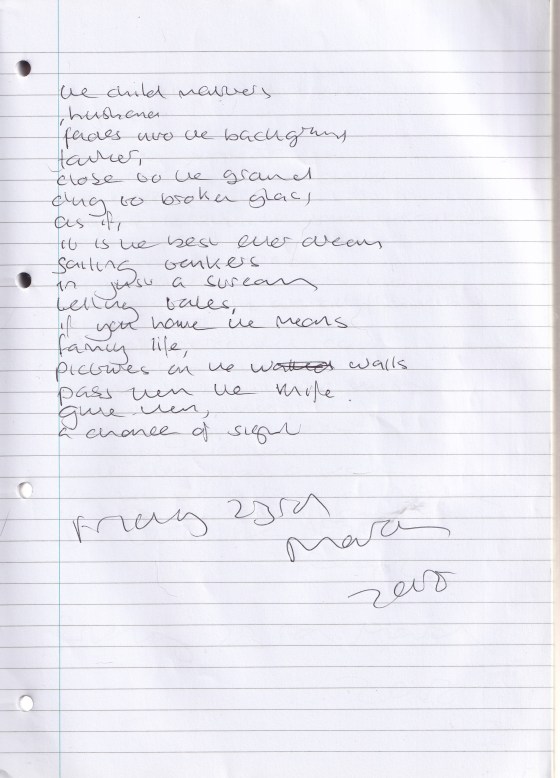 the child matters
, husband
fades into the background
close to the ground
cling to broken glass
as if,
it is the best ever dream
sailing tankers
in just a stream
telling tales,
if you have the means
family life,
pictures on the walls
pass them the knife.
give them,
a chance of sight
Friday 23rd
March